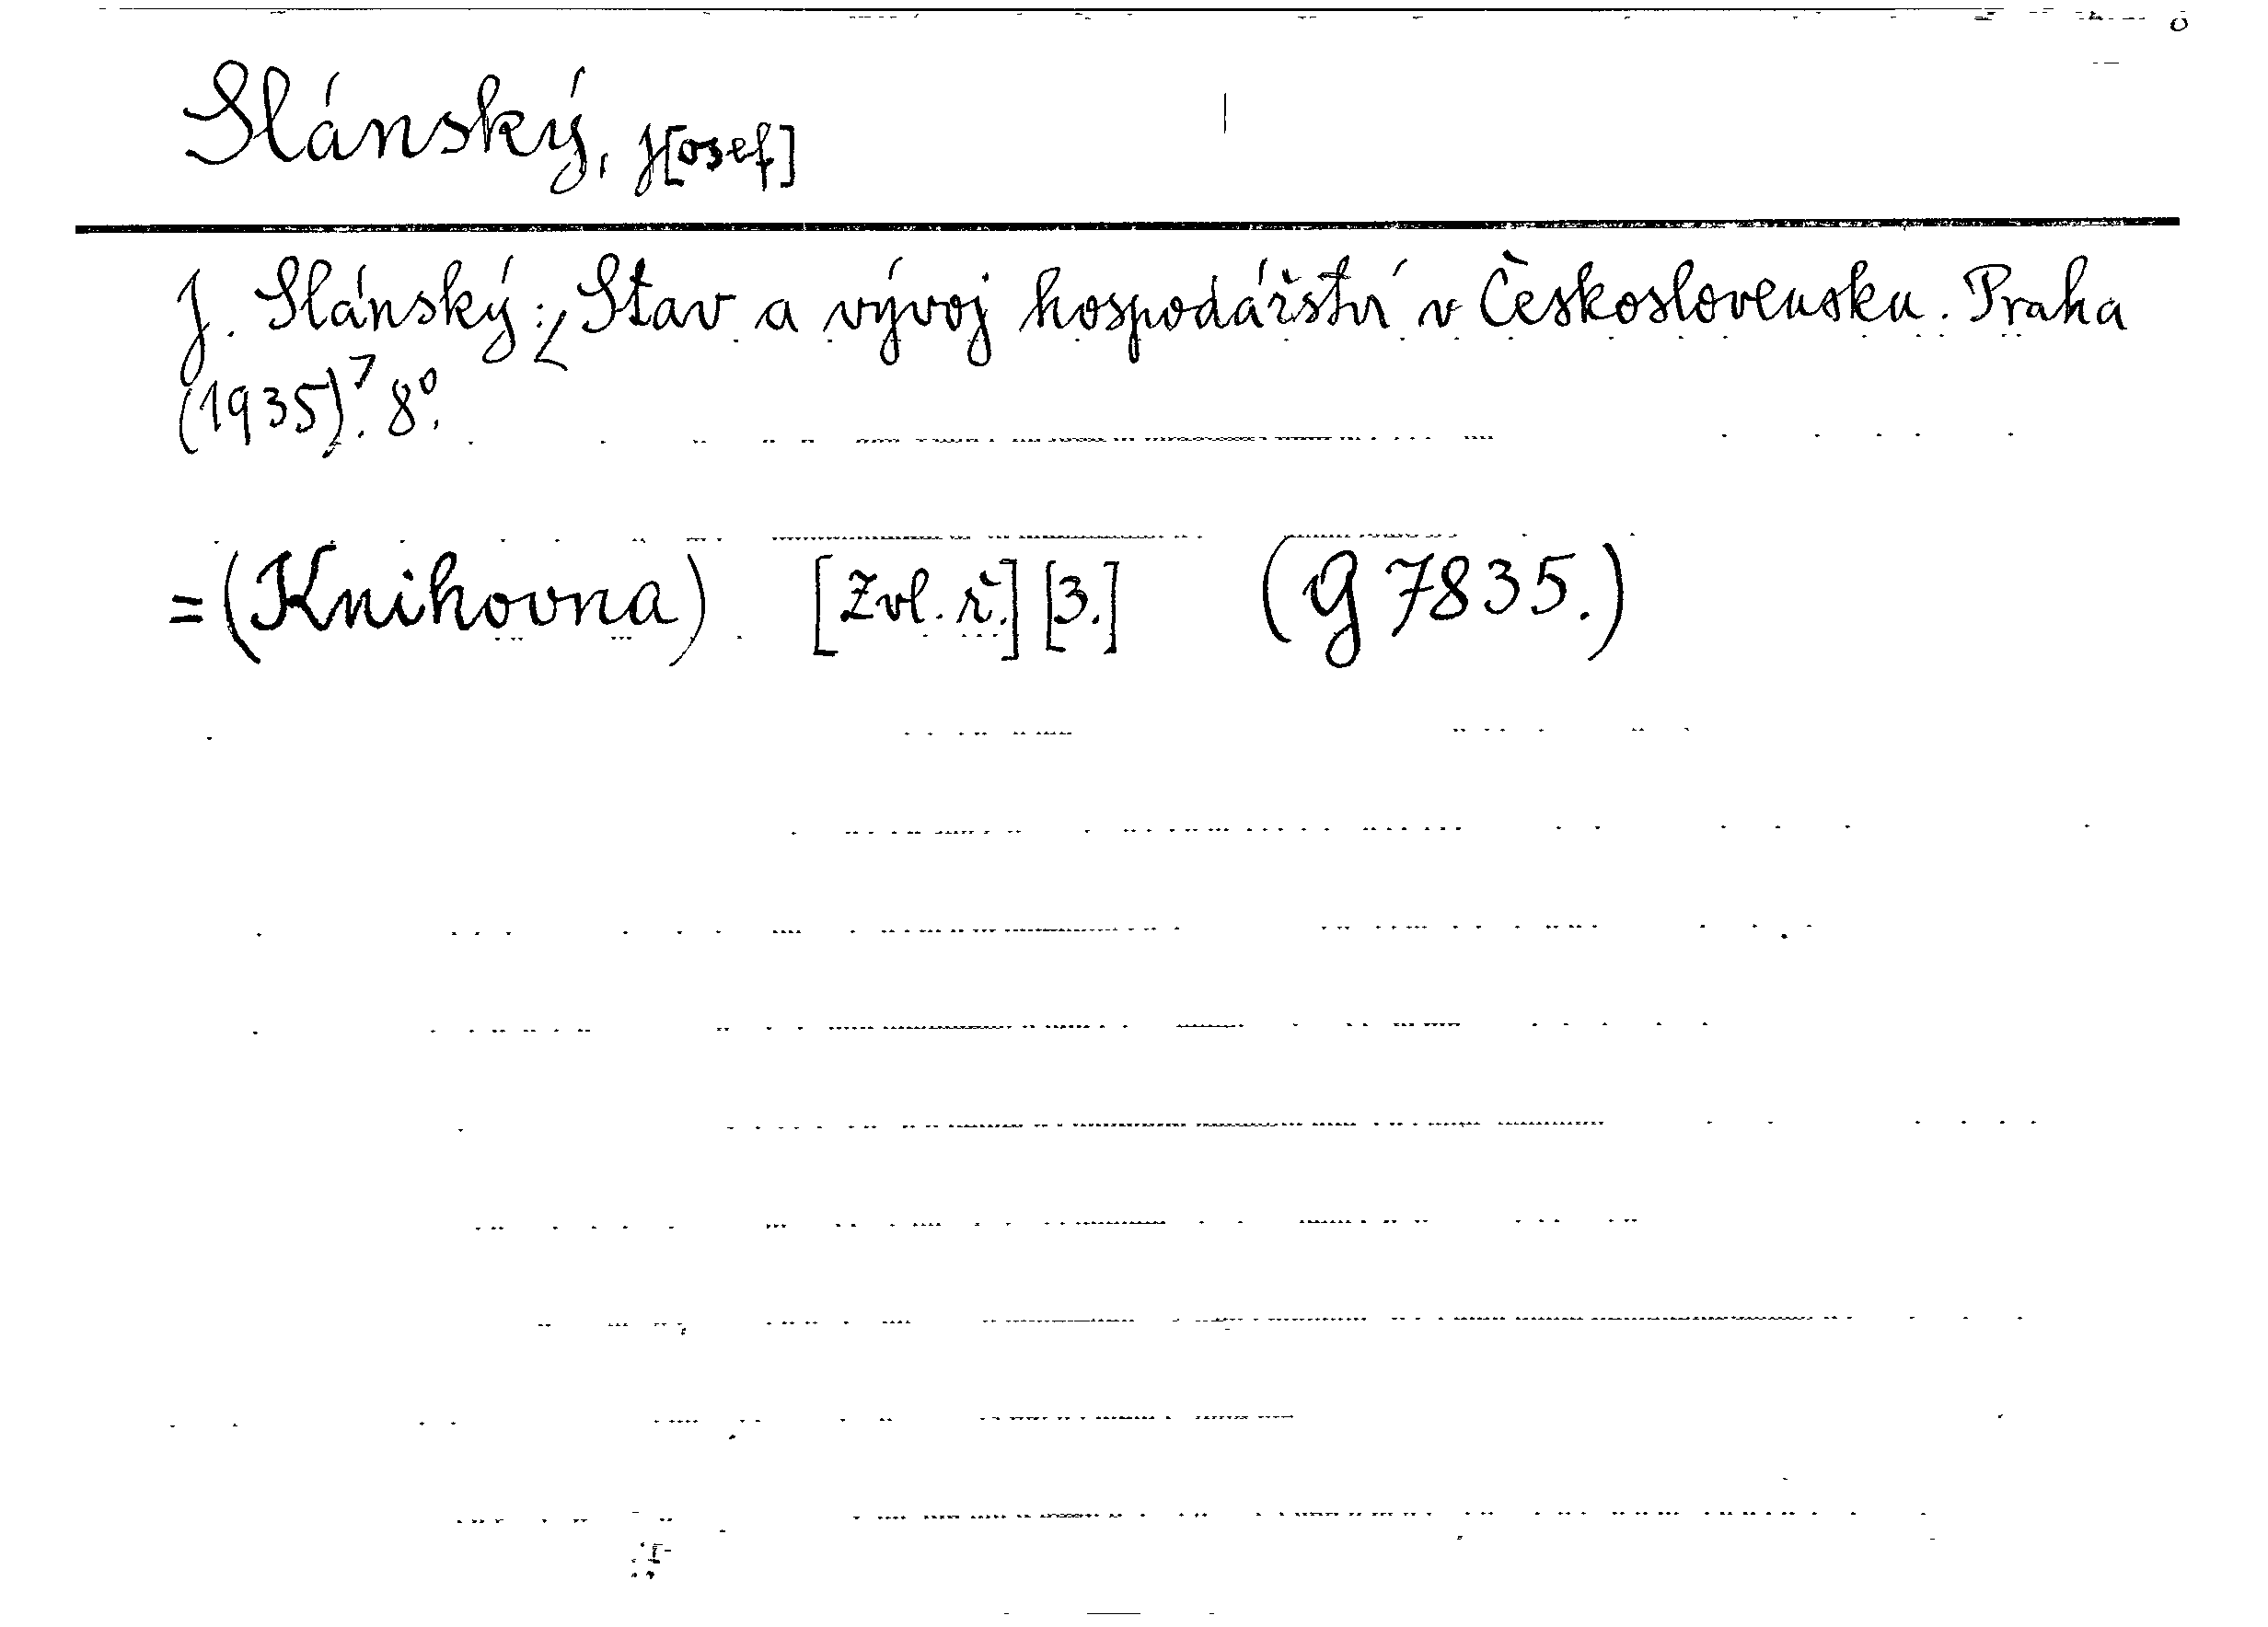 Slánský, J[osef]
J. Slánský: [Stav a vývoj hospodářství v Československu. Praha
(1935)]. 8°.
=(Knihovna) [Zvl. ř.] [3.] (G 7835.)